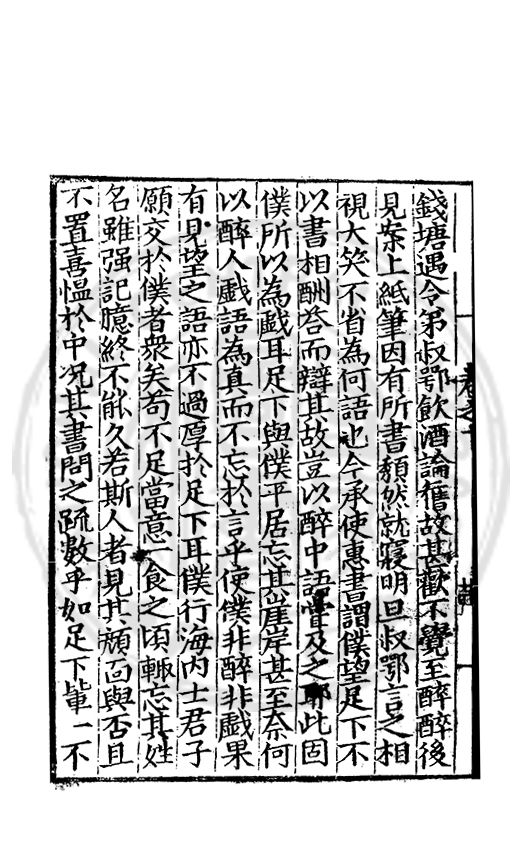 錢塘遇令弟叔鄂飲酒論舊故甚歡不覺至醉醉後
見案上紙筆因有所書頹然就寢明旦叔鄂言之相
視大笑不省為何語也今承使惠書謂僕望足下不
以書相酬荅而辯其故豈以醉中語嘗及之耶此固
僕所以為戲耳足下與僕平居忘其崖岸甚至奈何
以醉人戲語為真而不忘於言乎使僕非醉非戲果
有見望之語亦不過厚於足下耳僕行海內士君子
願交於僕者衆矣苟不足當意一食之頃輙忘其姓
名雖强記臆終不能久若斯人者見其頄靣與否且
不置喜愠於中况其書問之䟽數乎如足下軰一不